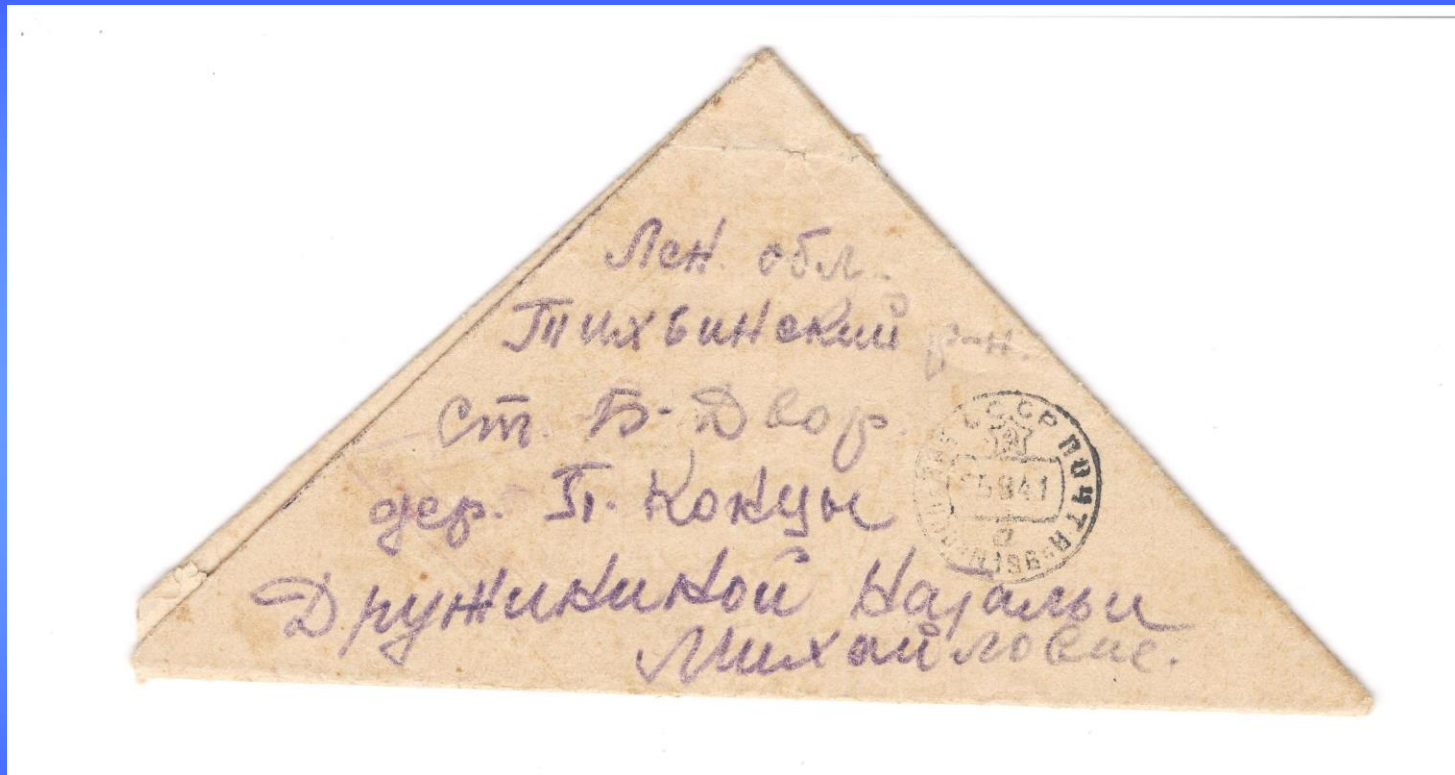 Лен. обл.
Тихвинский р-н.
ст. Б-Двор.
дер. П. Концы
Дружининой Натальи
Михайловне.
СССР ПОЧТА